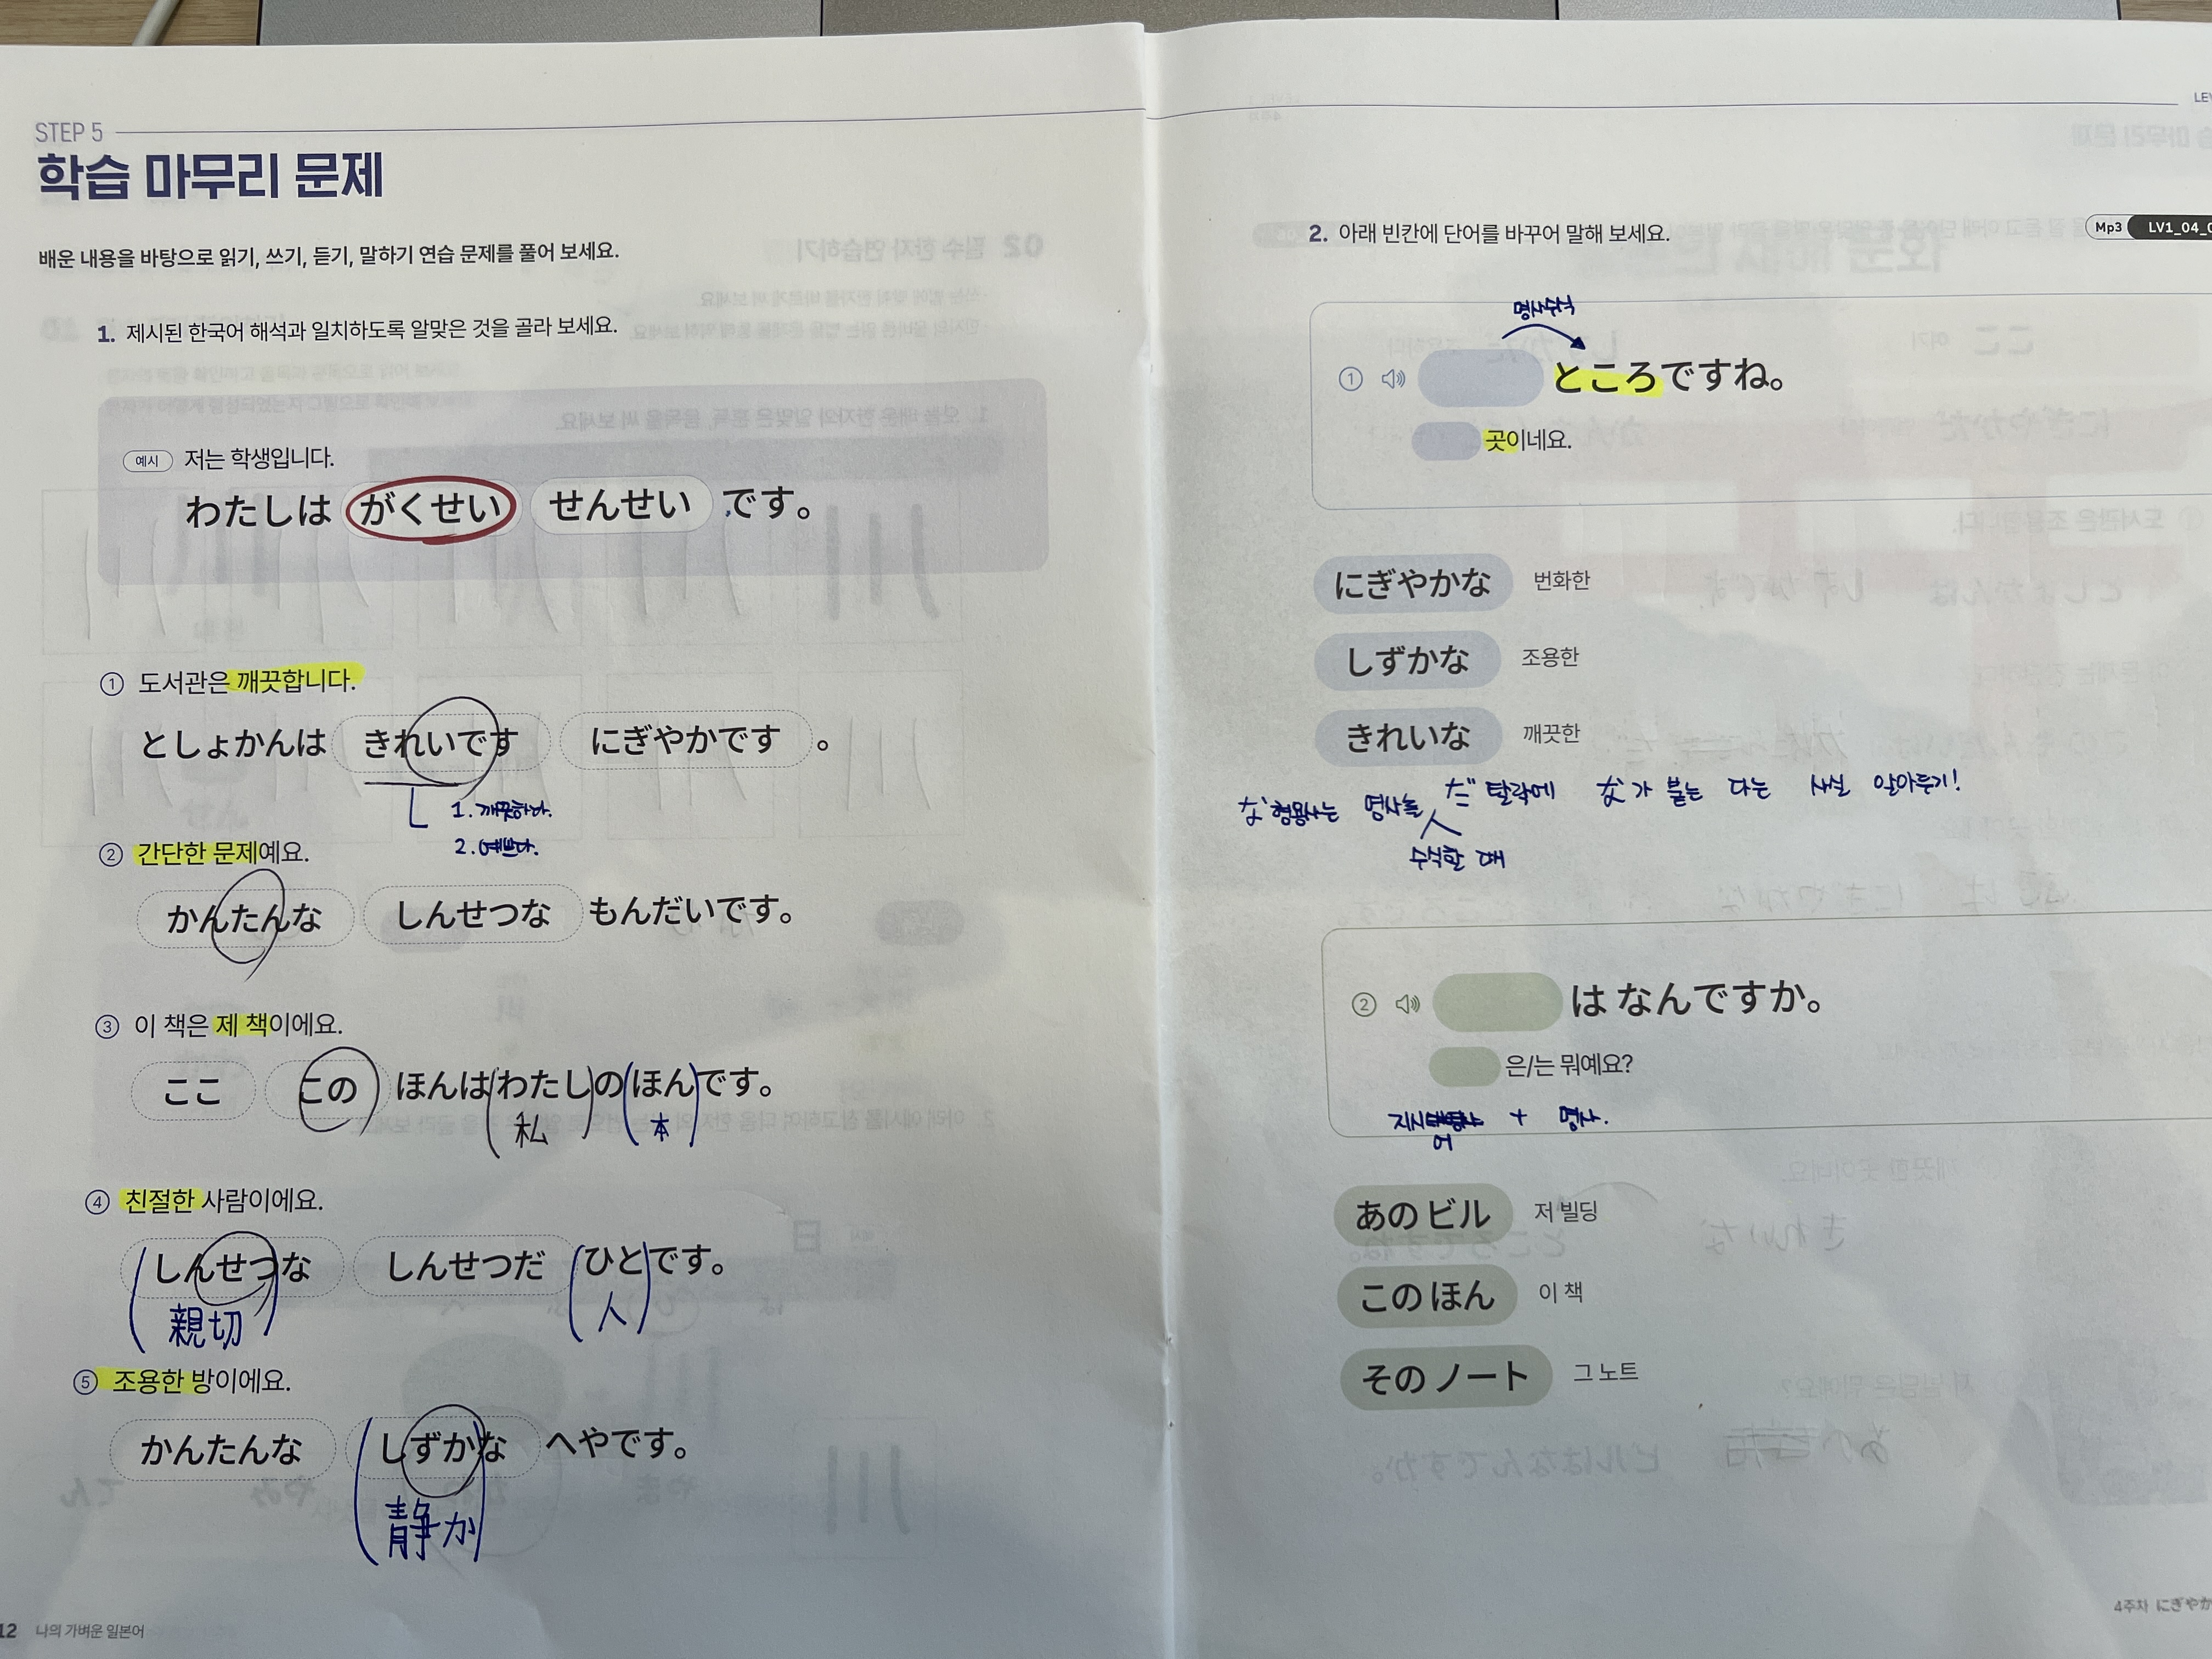 STEP 5
학습 마무리 문제
배운 내용을 바탕으로 읽기, 쓰기, 듣기, 말하기 연습 문제를 풀어 보세요.
1. 제시된 한국어 해석과 일치하도록 알맞은 것을 골라 보세요.
예시 저는 학생입니다.
わたしは がくせい せんせい です。
① 도서관은 깨끗합니다.
としょかんは きれいです にぎやかです 。
1. 깨끗하다.
2. 예쁘다.
② 간단한 문제예요.
かんたんな しんせつな もんだいです。
③ 이 책은 제 책이에요.
ここ この ほんは わたしの ほんです。
私 本
④ 친절한 사람이에요.
しんせつな しんせつだ ひとです。
親切 人
⑤ 조용한 방이에요.
かんたんな しずかな へやです。
静か
12 나의 가벼운 일본어
LE
2. 아래 빈칸에 단어를 바꾸어 말해 보세요.
Mp3 LV1_04_0
명사수식
① ところですね。
곳이네요.
にぎやかな 번화한
しずかな 조용한
きれいな 깨끗한
な형용사는 명사를 だ 탈락에 な가 붙는 다는 사실 알아두기!
수식할 때
② は なんですか。
은/는 뭐예요?
지시어 + 명사.
あの ビル 저 빌딩
この ほん 이 책
その ノート 그 노트
4주차 にぎやか